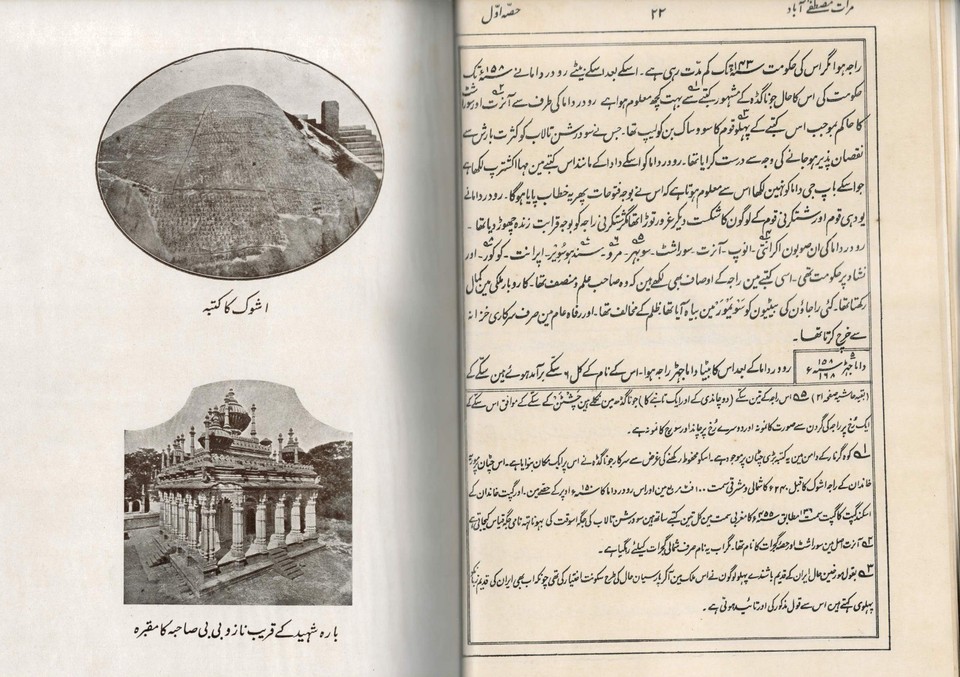 مرات مصطفےٰ آباد
۲۲
حصہ اوّل
راجہ ہوا مگر اس کی حکومت سنہ ۱۴۳ء تک کم مدّت رہی ہے۔ اسکے بعد اسکے بیٹے رودرداما نے سنہ ۱۵۸ء تک
حکومت کی اس کا حال جوناگڈہ کے مشہور کتبے سے بہت کچھ معلوم ہوا ہے رودرداما کی طرف سے آنرت اور سوراشٹ
کا حاکم بموجب اس کتبے کے پہلو قوم کا سووساک بن کولیپ تھا۔ جس نے سودرشن تالاب کو کثرت بارش سے
نقصان پذیر ہو جانے کی وجہ سے درست کرایا تھا۔ رودرداما کو اسکے دادا کے مانند اس کتبے مین مہا اکشترپ لکھا ہے
جو اسکے باپ جی داما کو نہین لکھا اس سے معلوم ہوتا ہے کہ اس نے بوجہ فتوحات پھر یہ خطاب پایا ہوگا۔ رودرداما نے
یودہی قوم اور شتکرنی قوم کے لوگون کا شکست دیکر غرور توڑا تھا مگر شتکرنی راجہ کو بوجہ قرابت زندہ چھوڑ دیا تھا۔
رودرداما کی ان صوبون اکرانتی۔ انوپ۔ آنرت۔ سوراشٹ۔ سوبھر۔ مرو۔ سندہوسویر۔ اپرانت۔ کوکور۔ اور
نشاد پر حکومت تھی۔ اسی کتبے مین راجہ کے اوصاف بھی لکھے ہین کہ وہ صاحب علم و منصف تھا۔ کاروبار ملکی مین کمال
رکھتا تھا۔ کئی راجاؤن کی بیٹیون کو سَویَموَر مین بیاہ آیا تھا۔ ظلم کے مخالف تھا۔ اور رفاہ عام مین صرف سرکاری خزانہ
سے خرچ کرتا تھا۔
داما جہڑ سنہ ۱۵۸ ۱۶۸ ء
رودرداما کے بعد اس کا بیٹا داما جہڑ راجہ ہوا۔ اس کے نام کے کل ۶ سکے برآمد ہوئے ہین سکے کے
(بقیہ حاشیہ صفحہ ۲۱) ۵ اس راجہ کے تین سکے (دو چاندی کے اور ایک تانبے کا) جوناگڈھ مین نکلے ہین چشتن کے سکے کے موافق اس سکے کے
ایک رُخ پر راجہ کی گردن سے صورت کا نمونہ اور دوسرے رُخ پر چاند اور سورج کا نمونہ ہے۔
۱ کوہ گرنار کے دامن مین یہ کتبہ بڑی چٹان پر موجود ہے۔ اسکو محفوظ رکھنے کی غرض سے سرکار جوناگڈہ نے اس پر ایک مکان بنوایا ہے۔ اس چٹان پر
خاندان کے راجہ اشوک کا قبل کا شمالی و مشرقی سمت ۱۰۰ فٹ مربع مین اور اس رودرداما کا سنہ ۱۵۰ء اوپر کے حصے مین۔ اور گپت خاندان کے
اسکند گپت کا گپت سمت ۱۳۶ مطابق سنہ ۴۵۵ء کا مغربی سمت مین کل تین کتبے ساتھ ہین سودرشن تالاب کی جگہ اسوقت کی
۲ آنرت اصل مین سوراشٹ اور حصہ گجرات کا نام تھا۔ مگر اب یہ نام صرف شمالی گجرات کیلئے رہگیا ہے۔
۳ بقول مورخین حال ایران کے قدیم باشندے پہلو لوگون نے اس ملک مین آکر پارسیان حال کی طرح سکونت اختیار کی تھی چونکہ اب بھی ایران کی قدیم زبانکو
پہلوی کہتے ہین اس سے قول مذکور کی اور تائید ہوتی ہے۔
اشوک کا کتبہ
بارہ شہید کے قریب نازو بی بی صاحبہ کا مقبرہ